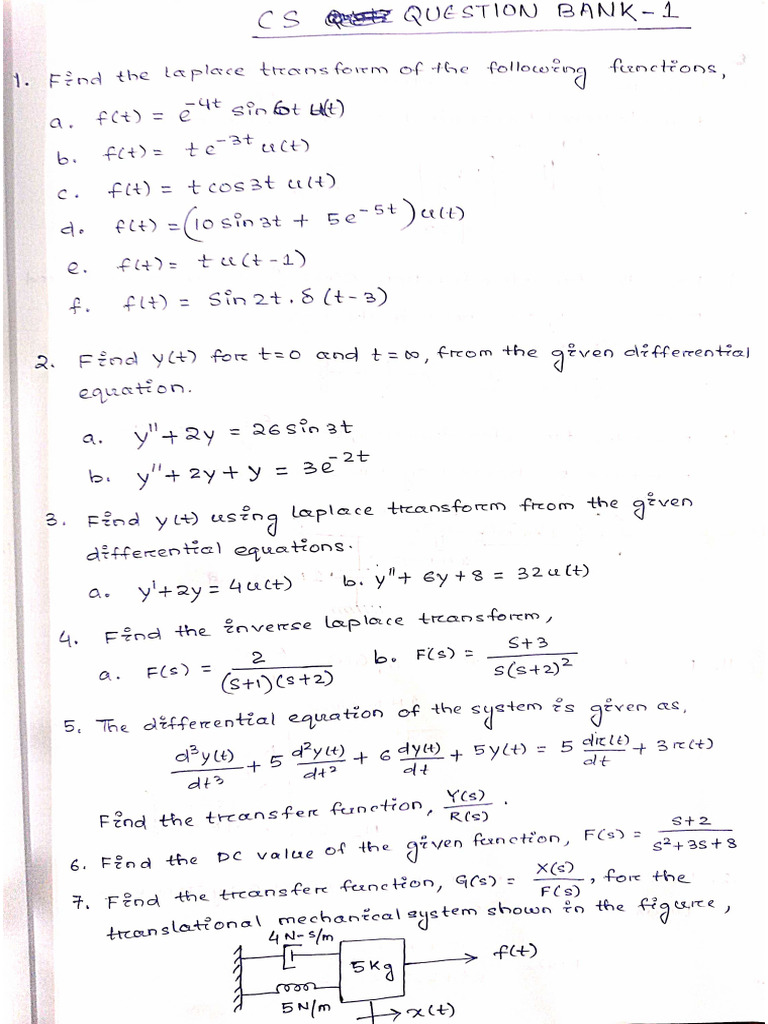 CS QUESTION BANK-1
1. Find the laplace transform of the following functions,
a. f(t) = e^-4t sin 6t u(t)
b. f(t) = te^-3t u(t)
c. f(t) = t cos3t u(t)
d. f(t) = (10 sin 3t + 5e^-5t) u(t)
e. f(t) = t u(t-1)
f. f(t) = Sin 2t . δ(t-3)
2. Find y(t) for t=0 and t=∞, from the given differential
equation.
a. y''+2y = 26 sin 3t
b. y''+2y+y = 3e^-2t
3. Find y(t) using laplace transform from the given
differential equations.
a. y'+2y = 4u(t) b. y''+ 6y+8 = 32u(t)
4. Find the inverse laplace transform,
a. F(s) = 2/((s+1)(s+2)) b. F(s) = (s+3)/(s(s+2)^2)
5. The differential equation of the system is given as,
d^3y(t)/dt^3 + 5 d^2y(t)/dt^2 + 6 dy(t)/dt + 5y(t) = 5 dr(t)/dt + 3r(t)
Find the transfer function, Y(s)/R(s).
6. Find the DC value of the given function, F(s) = (s+2)/(s^2+3s+8)
7. Find the transfer function, G(s) = X(s)/F(s), for the
translational mechanical system shown in the figure,
4 N-s/m
5 Kg
f(t)
5 N/m
x(t)